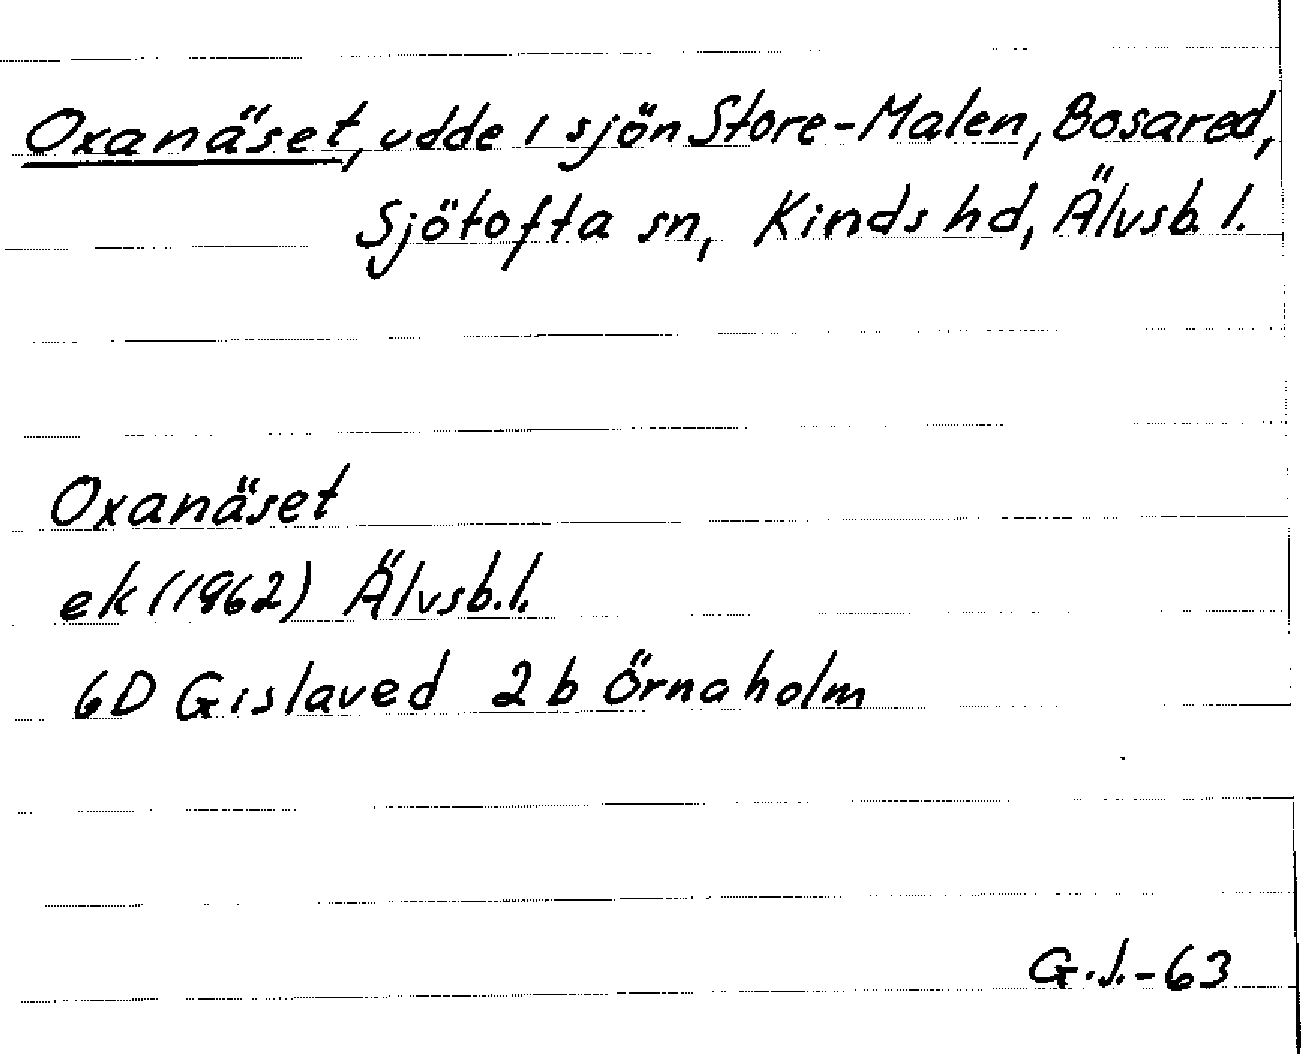 Oxanäset, udde i sjön Store-Malen, Bosared,
Sjötofta sn, Kinds hd, Älvsb. l.
Oxanäset
ek (1962) Älvsb. l.
6D Gislaved 2 b Örnaholm
G.J.-63